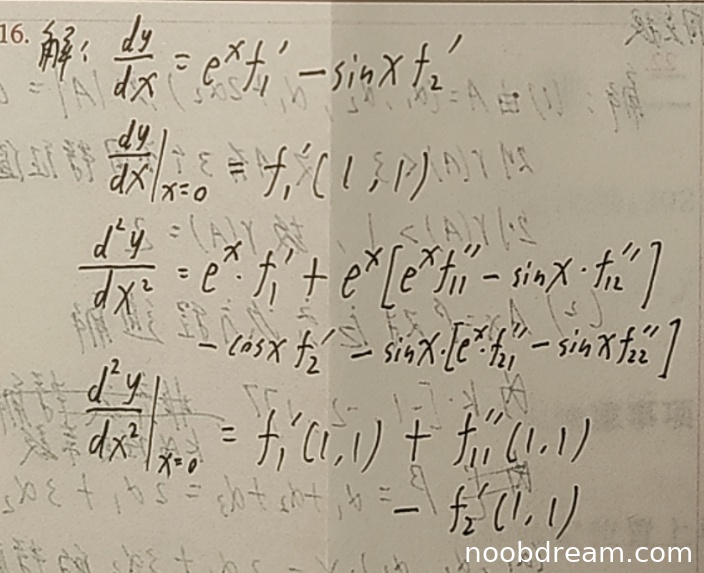 16. 解: dy/dx = eˣf₁′ − sinx f₂′
dy/dx|ₓ₌₀ = f₁′(1,1)
d²y/dx² = eˣ·f₁′ + eˣ[eˣf₁₁″ − sinx·f₁₂″]
− cosx f₂′ − sinx·[eˣ·f₂₁″ − sinx f₂₂″]
d²y/dx²|ₓ₌₀ = f₁′(1,1) + f₁₁″(1,1)
− f₂′(1,1)
noobdream.com